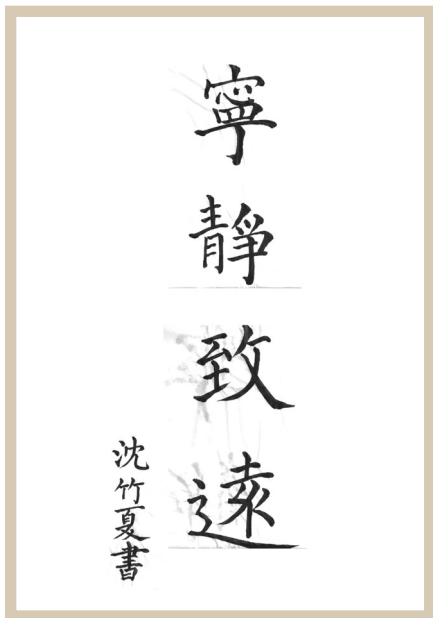 寧靜致遠
沈竹夏書